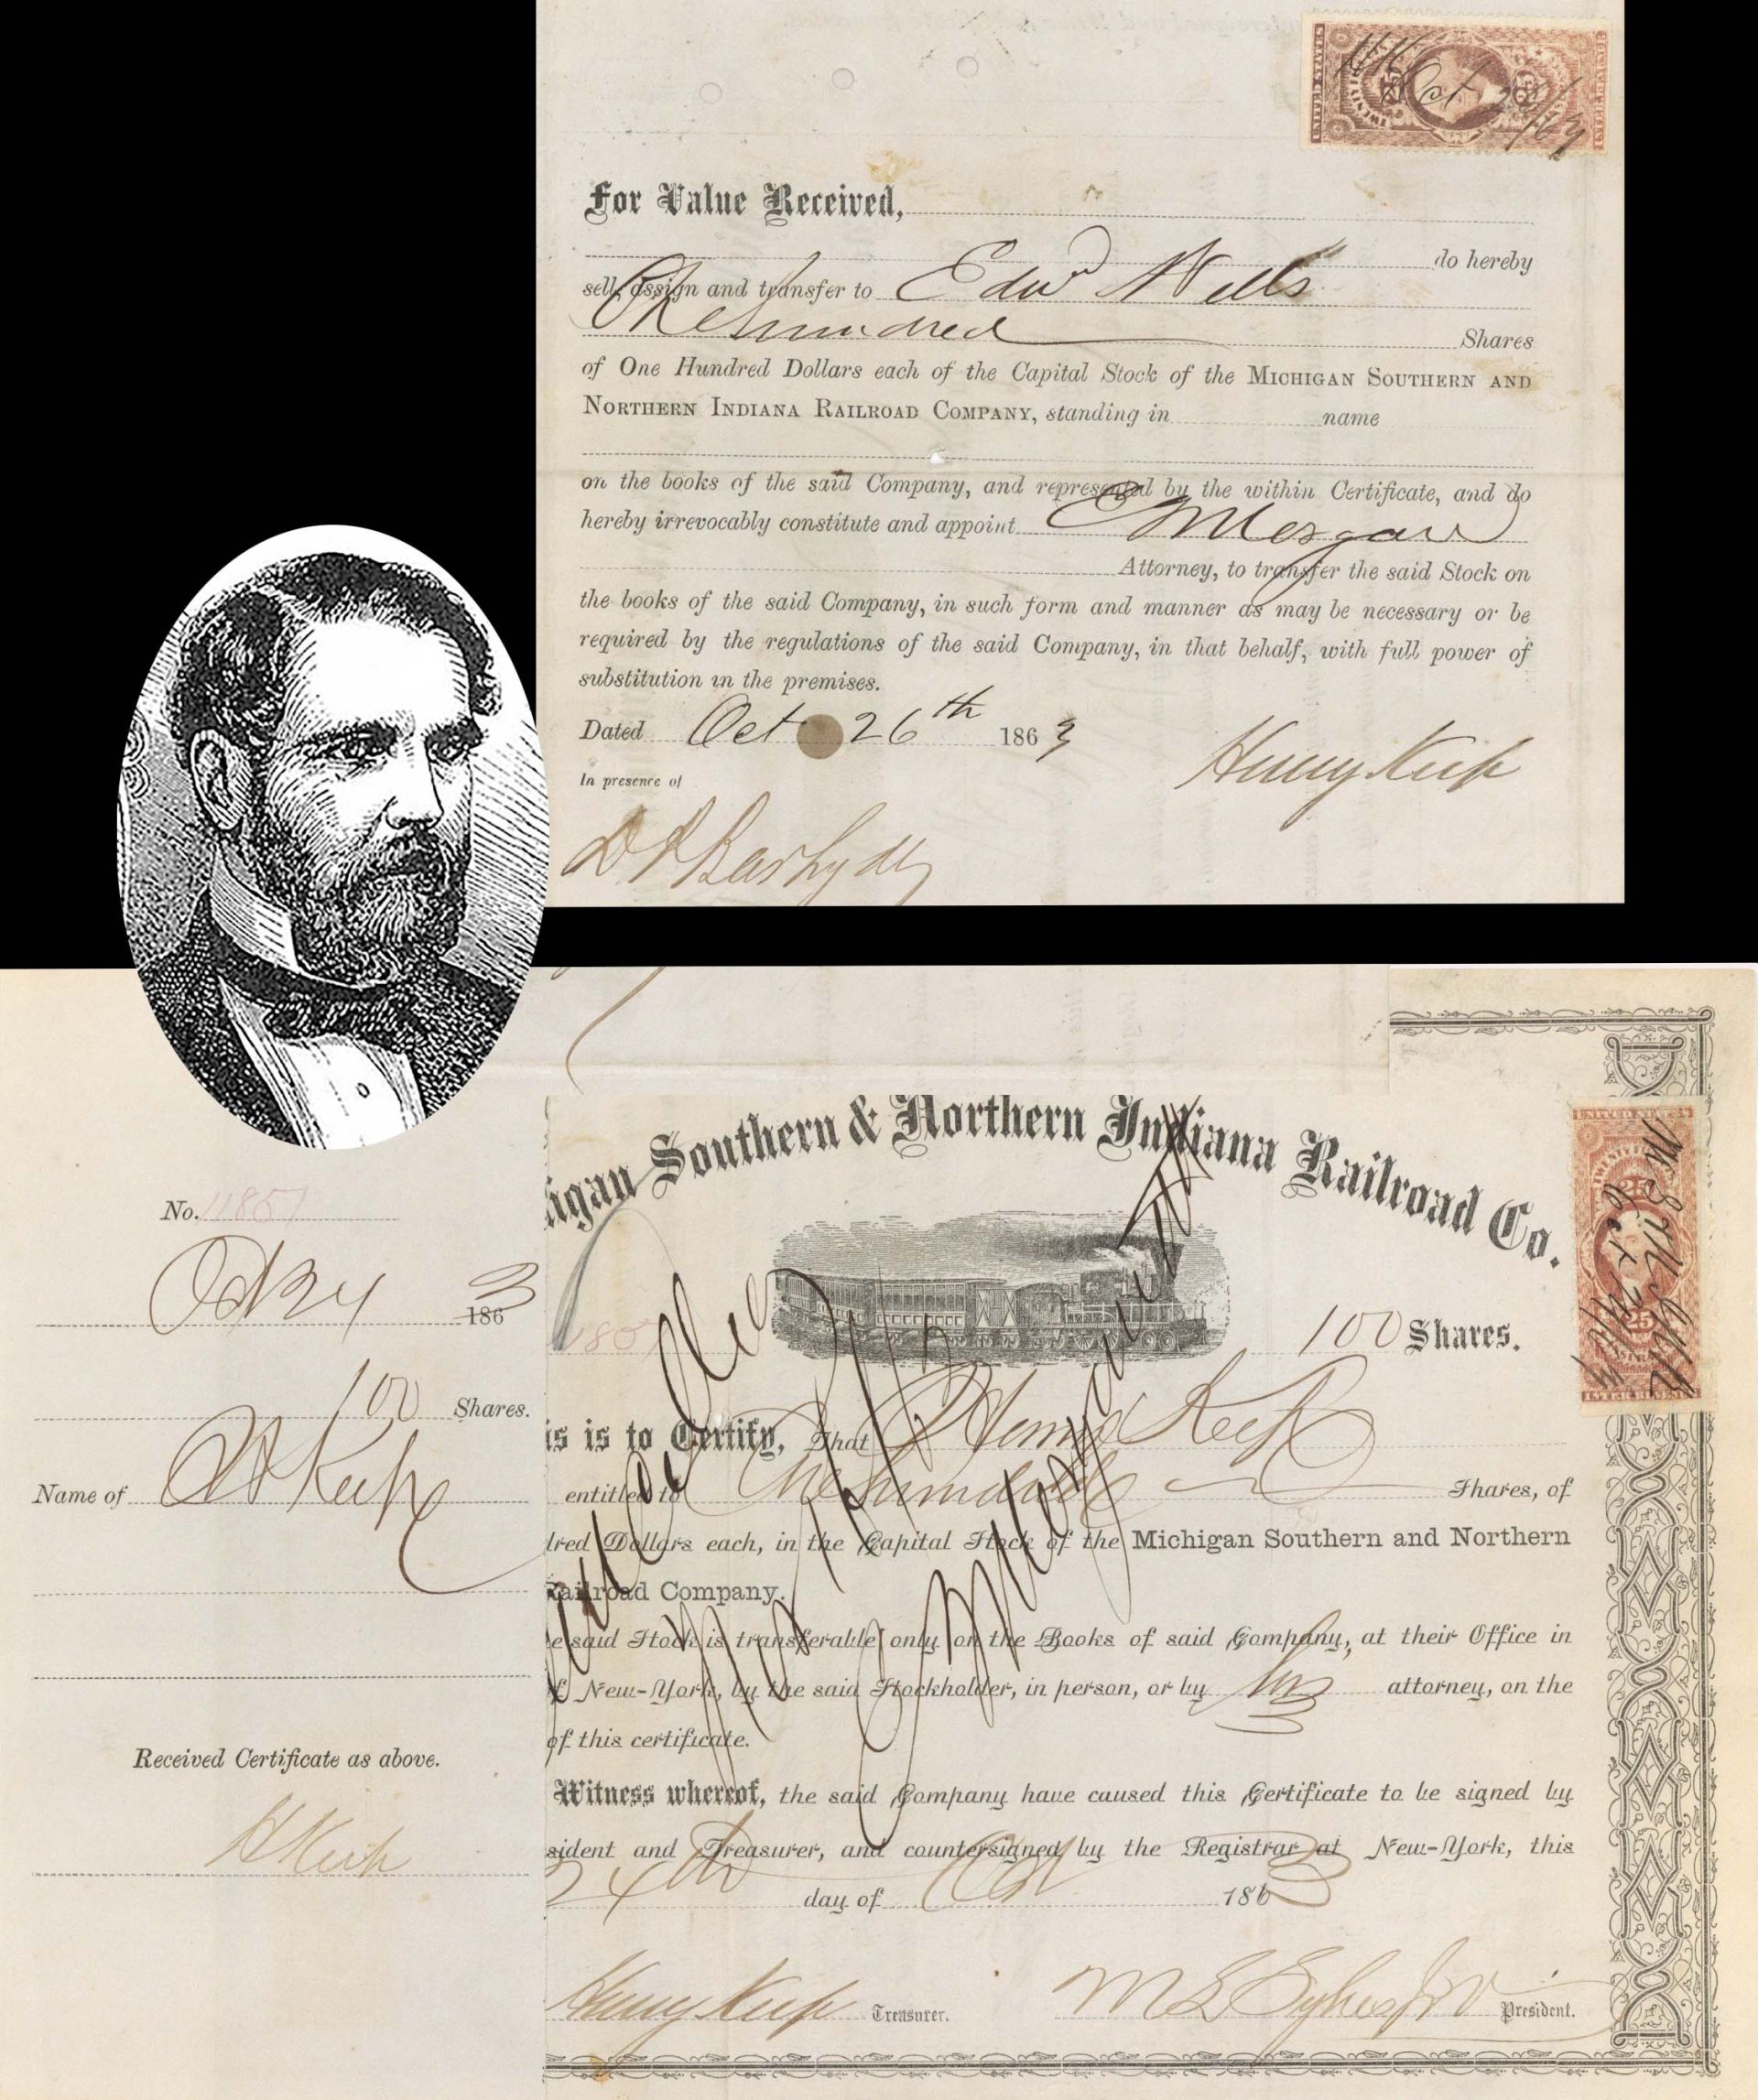 UNITED STATES
Oct 26/63
For Value Received,
do hereby
sell, assign and transfer to Edwd Wells
One hundred Shares
of One Hundred Dollars each of the Capital Stock of the MICHIGAN SOUTHERN AND
NORTHERN INDIANA RAILROAD COMPANY, standing in name
on the books of the said Company, and represented by the within Certificate, and do
hereby irrevocably constitute and appoint E Morgan
Attorney, to transfer the said Stock on
the books of the said Company, in such form and manner as may be necessary or be
required by the regulations of the said Company, in that behalf, with full power of
substitution in the premises.
Dated Oct 26th 1863
Henry Keep
In presence of
No. 11857
Oct 24 1863
100 Shares.
Name of H Keep
Received Certificate as above.
H Keep
igan Southern & Northern Indiana Railroad Co.
UNITED STATES
25
25
INTER REVENUE
1857
100 Shares.
Cancelled
is is to Certify, That Henry Keep
entitled to One hundred Shares, of
dred Dollars each, in the Capital Stock of the Michigan Southern and Northern
Railroad Company.
e said Stock is transferable only on the Books of said Company, at their Office in
f New-York, by the said Stockholder, in person, or by his attorney, on the
of this certificate.
Witness whereof, the said Company have caused this Certificate to be signed by
sident and Treasurer, and countersigned by the Registrar at New-York, this
24th day of Oct 1863
Henry Keep Treasurer.
M L Sykes Jr V President.